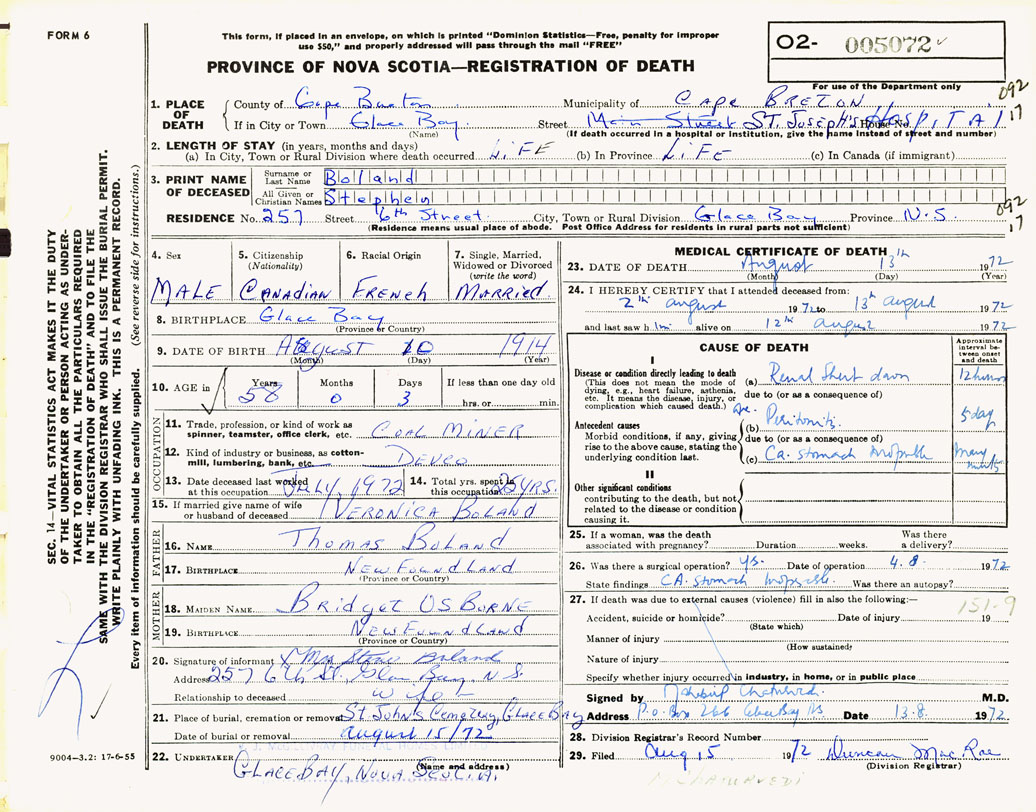 FORM 6
This form, if placed in an envelope, on which is printed "Dominion Statistics—Free, penalty for improper
use $50," and properly addressed will pass through the mail "FREE"
O2- 005072
For use of the Department only
PROVINCE OF NOVA SCOTIA—REGISTRATION OF DEATH
1. PLACE OF DEATH County of Cape Breton Municipality of CAPE BRETON 092
If in City or Town Glace Bay Street Main Street ST. JOSEPH'S House No. HOSPITAL 17
(Name) (If death occurred in a hospital or institution, give the name instead of street and number)
2. LENGTH OF STAY (in years, months and days)
(a) In City, Town or Rural Division where death occurred LIFE (b) In Province LIFE (c) In Canada (if immigrant)
3. PRINT NAME OF DECEASED Surname or Last Name Boland
All Given or Christian Names Stephen
RESIDENCE No. 257 Street 6th Street City, Town or Rural Division Glace Bay Province N.S. 092
(Residence means usual place of abode. Post Office Address for residents in rural parts not sufficient) 17
4. Sex MALE
5. Citizenship (Nationality) CANADIAN
6. Racial Origin FRENCH
7. Single, Married, Widowed or Divorced (write the word) MARRIED
8. BIRTHPLACE Glace Bay
(Province or Country)
9. DATE OF BIRTH August 10 1914
(Month) (Day) (Year)
10. AGE in Years 58 Months 0 Days 3 If less than one day old hrs. or min.
OCCUPATION
11. Trade, profession, or kind of work as spinner, teamster, office clerk, etc. COAL MINER
12. Kind of industry or business, as cotton-mill, lumbering, bank, etc. DEVCO
13. Date deceased last worked at this occupation JULY 1972
14. Total yrs. spent in this occupation 25 YRS.
15. If married give name of wife or husband of deceased VERONICA BOLAND
FATHER
16. NAME Thomas BOLAND
17. BIRTHPLACE NEWFOUNDLAND
(Province or Country)
MOTHER
18. MAIDEN NAME Bridget OSBORNE
19. BIRTHPLACE NEWFOUNDLAND
(Province or Country)
20. Signature of informant X Mrs Steve Boland
Address 257 6th St. Glace Bay, N.S.
Relationship to deceased wife
21. Place of burial, cremation or removal St. John's Cemetery, GLACE BAY
Date of burial or removal August 15/72
22. UNDERTAKER
GLACE BAY, NOVA SCOTIA.
(Name and address)
MEDICAL CERTIFICATE OF DEATH
23. DATE OF DEATH August 13th 1972
(Month) (Day) (Year)
24. I HEREBY CERTIFY that I attended deceased from:
2th august 1972 to 13th august 1972
and last saw him alive on 12th august 1972
CAUSE OF DEATH
Approximate interval between onset and death
I
Disease or condition directly leading to death (a) Renal Shut down 12 hours
(This does not mean the mode of dying, e.g., heart failure, asthenia, etc. It means the disease, injury, or complication which caused death.)
due to (or as a consequence of)
Antecedent causes (b) Peritonitis 5 day
Morbid conditions, if any, giving rise to the above cause, stating the underlying condition last.
due to (or as a consequence of)
(c) Ca. stomach inoperable many
II
Other significant conditions
contributing to the death, but not related to the disease or condition causing it.
25. If a woman, was the death associated with pregnancy? Duration weeks. Was there a delivery?
26. Was there a surgical operation? ys. Date of operation 4.8. 1972
State findings CA. stomach inoperable Was there an autopsy?
27. If death was due to external causes (violence) fill in also the following:— 151-9
Accident, suicide or homicide? Date of injury 19
(State which)
Manner of injury
(How sustained)
Nature of injury
Specify whether injury occurred in industry, in home, or in public place
Signed by M.D.
Address P.O. Box 266 Glace Bay NS Date 13.8. 1972
28. Division Registrar's Record Number
29. Filed Aug 15 1972 Duncan MacRae
(Division Registrar)
M CHATURVEDI
SEC. 14—VITAL STATISTICS ACT MAKES IT THE DUTY
OF THE UNDERTAKER OR PERSON ACTING AS UNDER-
TAKER TO OBTAIN ALL THE PARTICULARS REQUIRED
IN THE "REGISTRATION OF DEATH" AND TO FILE THE
SAME WITH THE DIVISION REGISTRAR WHO SHALL ISSUE THE BURIAL PERMIT.
WRITE PLAINLY WITH UNFADING INK. THIS IS A PERMANENT RECORD.
Every item of information should be carefully supplied. (See reverse side for instructions.)
9004—3.2: 17-6-55